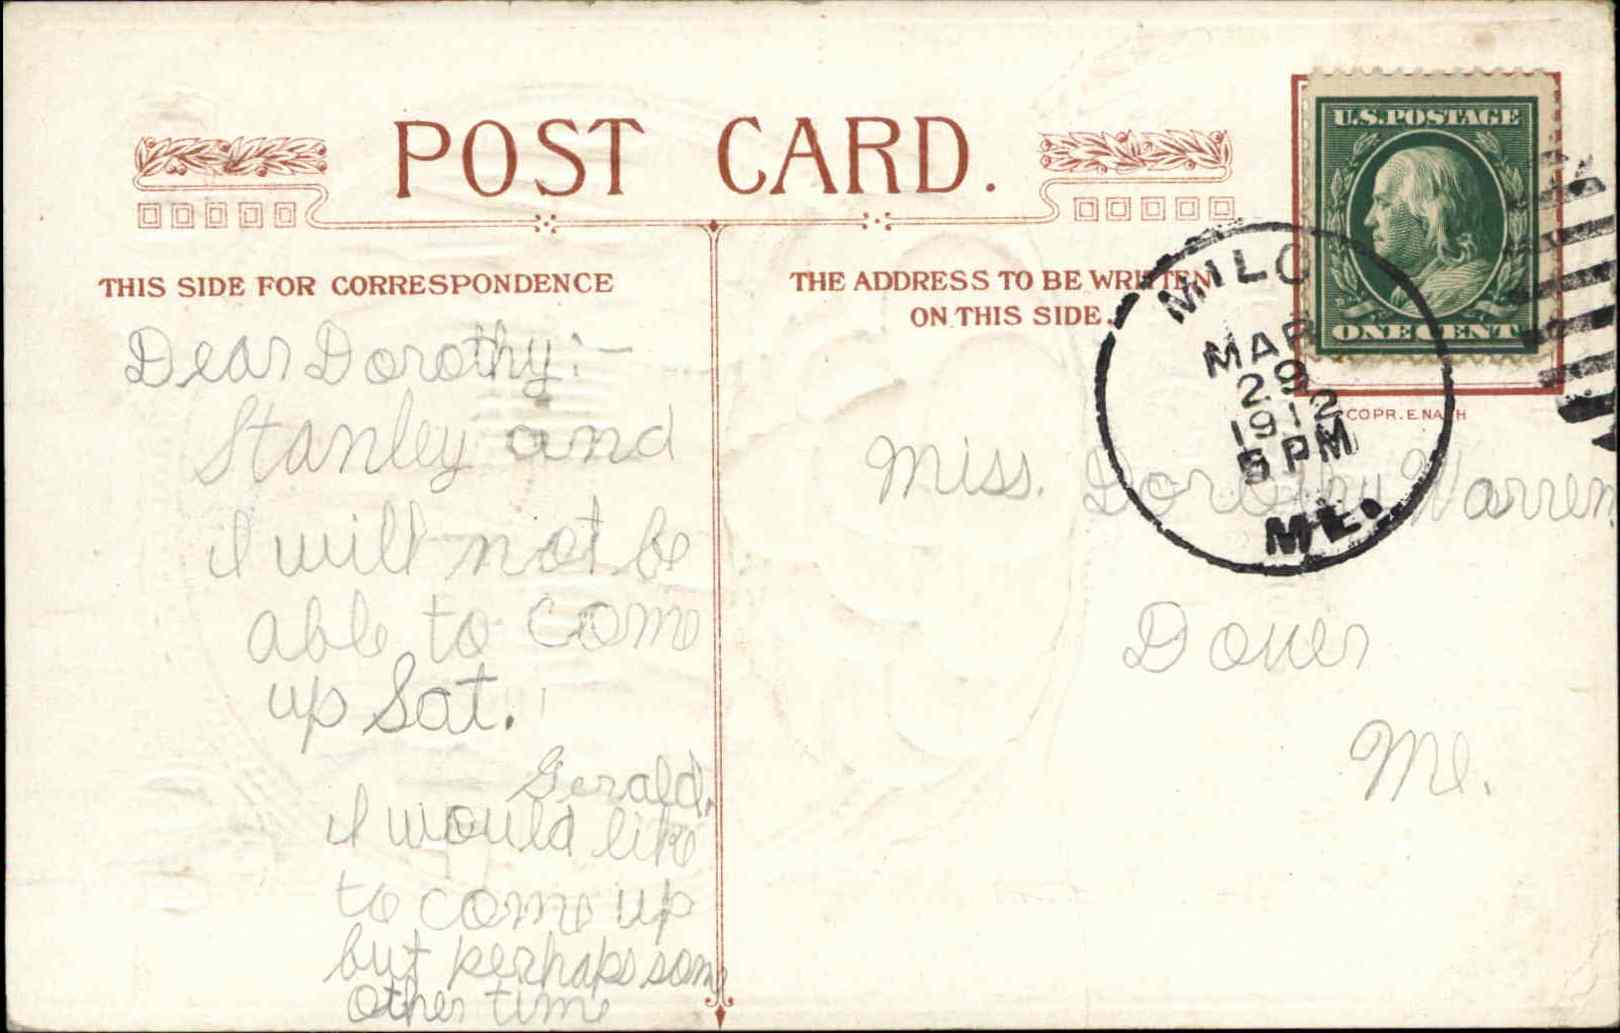 POST CARD.
THIS SIDE FOR CORRESPONDENCE
THE ADDRESS TO BE WRITTEN
ON THIS SIDE.
U.S. POSTAGE
ONE CENT
MILO
MAR
29
1912
PM
ME.
COPR. E. NASH
Dear Dorothy:-
Stanley and
I will not be
able to come
up Sat.
Gerald.
I would like
to come up
but perhaps some
other time
Miss. Dorothy Warren
Dover
Me.